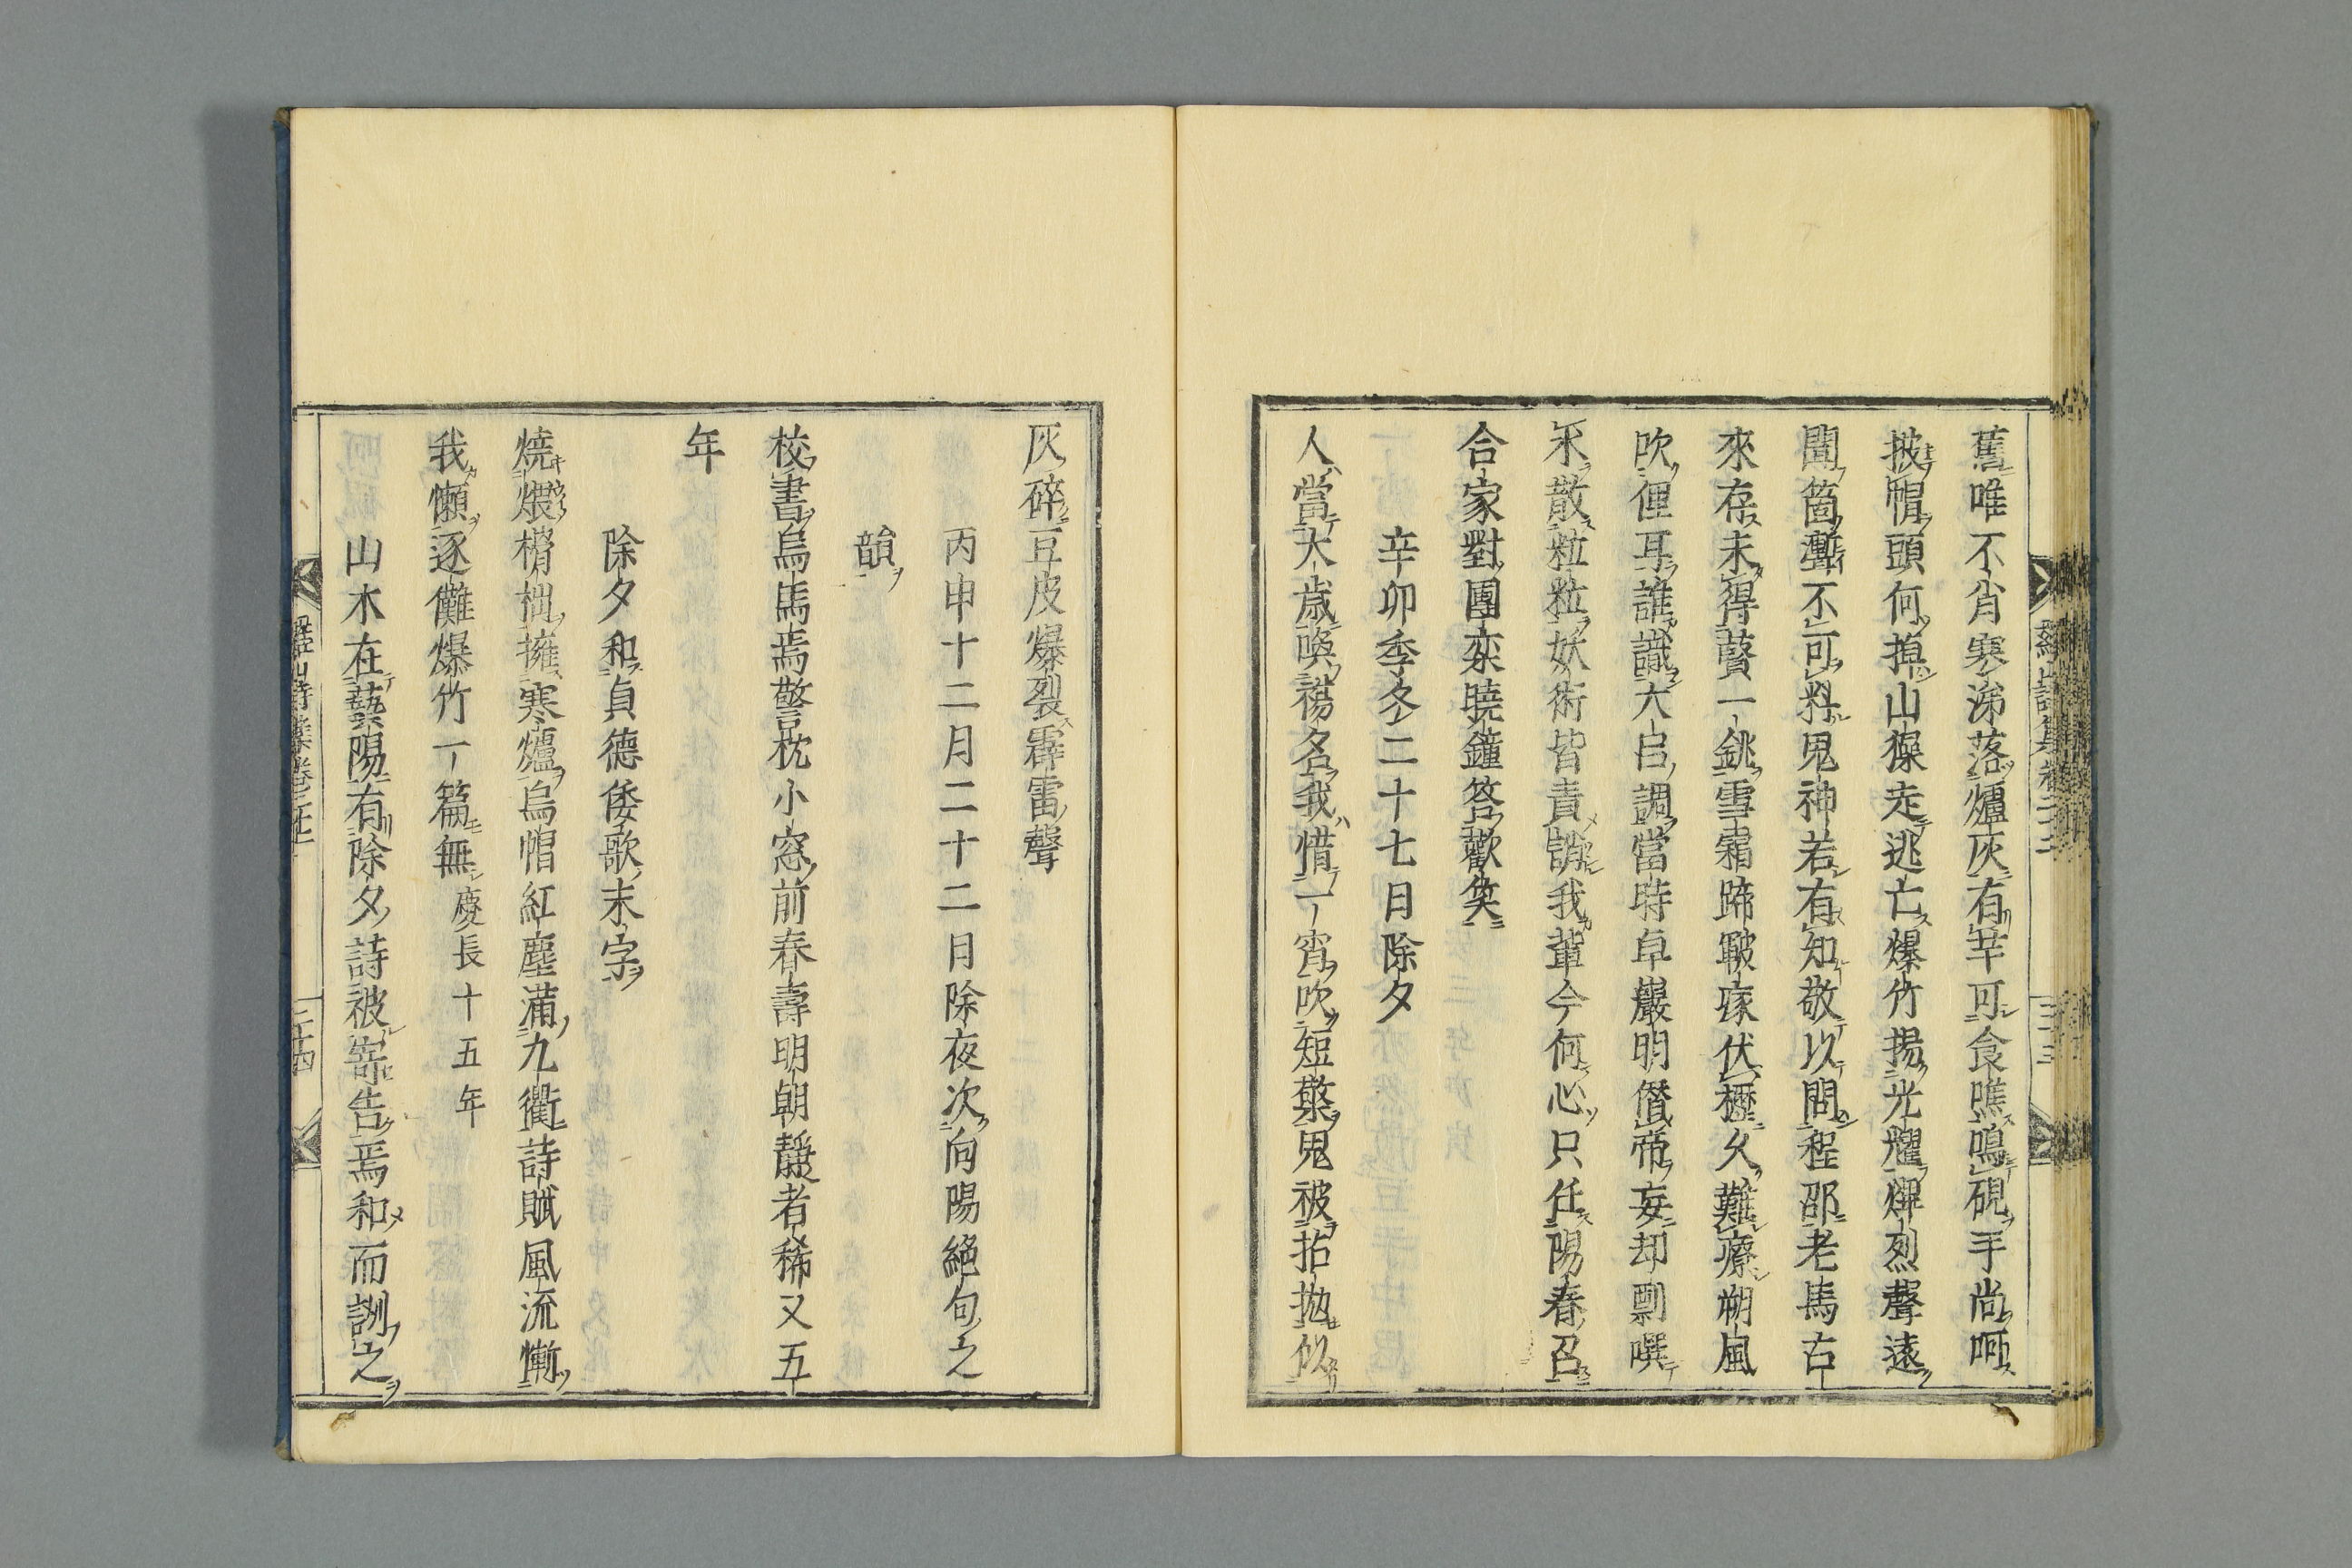 舊唯不肖寒涕落爐灰有芋可食噍鳴硯手尚呵
披帽頭何掉山獠走逃亡爆竹揚光耀燀烈聲遠
聞箇漸不可料鬼神若有知敬以問程邵老馬右
來存未得醫一銚雪霜蹄皸瘃伏櫪久難療朔風
吹俚耳誰識大呂調當時卓巖明僭帝妄却剽噀
米散粒粒妖術皆責誚我輩今何心只任陽春召
合家對團欒曉鐘答歡笑
辛卯季冬二十七日除夕
人當大歳喚禓名我惜一宵吹短檠鬼被拈拋似
灰碎豆皮爆裂霹雷聲
丙申十二月二十二月除夜次向陽絕句之
韻
校書烏焉焉警枕小窓前春壽明朝靜者稀又五
年
除夕和貞德倭歌末字
燒煨榾柮擁寒爐烏帽紅塵滿九衢詩賦風流慚
我懶逐儺爆竹一篇無 慶長十五年
山木在藝陽有除夕詩被寄告焉和而詶之